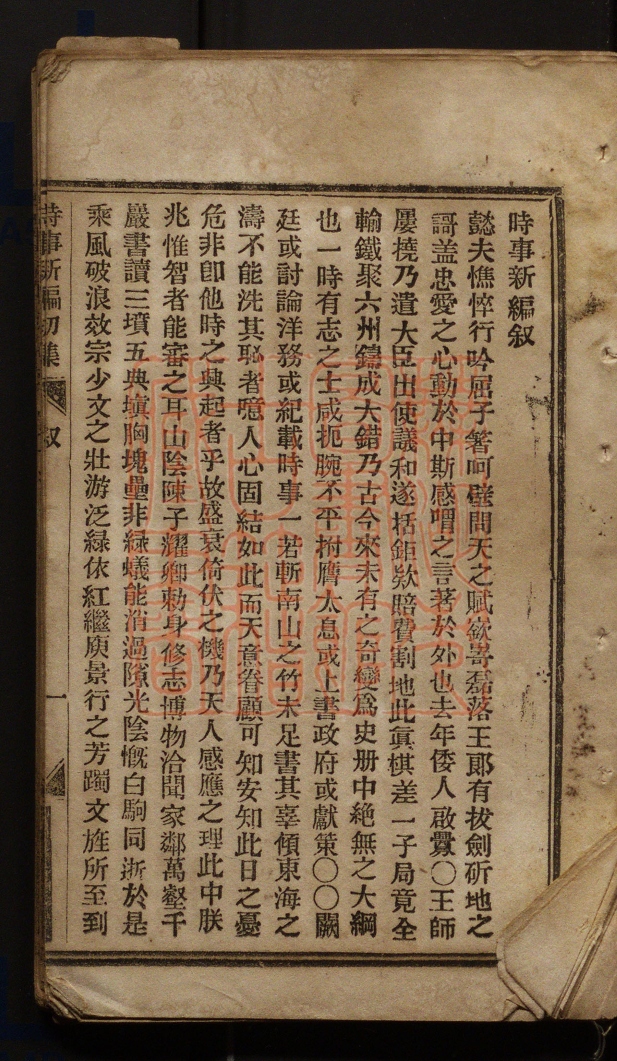 時事新編叙
懿夫憔悴行吟屈子箸呵壁問天之賦嶔嵜磊落王郎有拔劍斫地之
謌盖忠愛之心動於中斯感喟之言著於外也去年倭人啟釁〇王師
屢撓乃遣大臣出使議和遂括鉅欵賠費割地此眞棋差一子局竟全
輸鐵聚六州鑄成大錯乃古今來未有之奇變爲史册中絶無之大綱
也一時有志之士咸扼腕不平拊膺太息或上書政府或獻策〇〇闕
廷或討論洋務或紀載時事一若斬南山之竹未足書其辜傾東海之
濤不能洗其恥者噫人心固結如此而天意眷顧可知安知此日之憂
危非卽他時之興起者乎故盛衰倚伏之機乃天人感應之理此中朕
兆惟智者能審之耳山陰陳子耀卿勅身修志博物洽聞家鄰萬壑千
巖書讀三墳五典塡胸塊壘非綠蟻能消過隙光陰慨白駒同逝於是
乘風破浪效宗少文之壯游泛綠依紅繼庾景行之芳躅文旌所至到
時事新編初集
叙
一